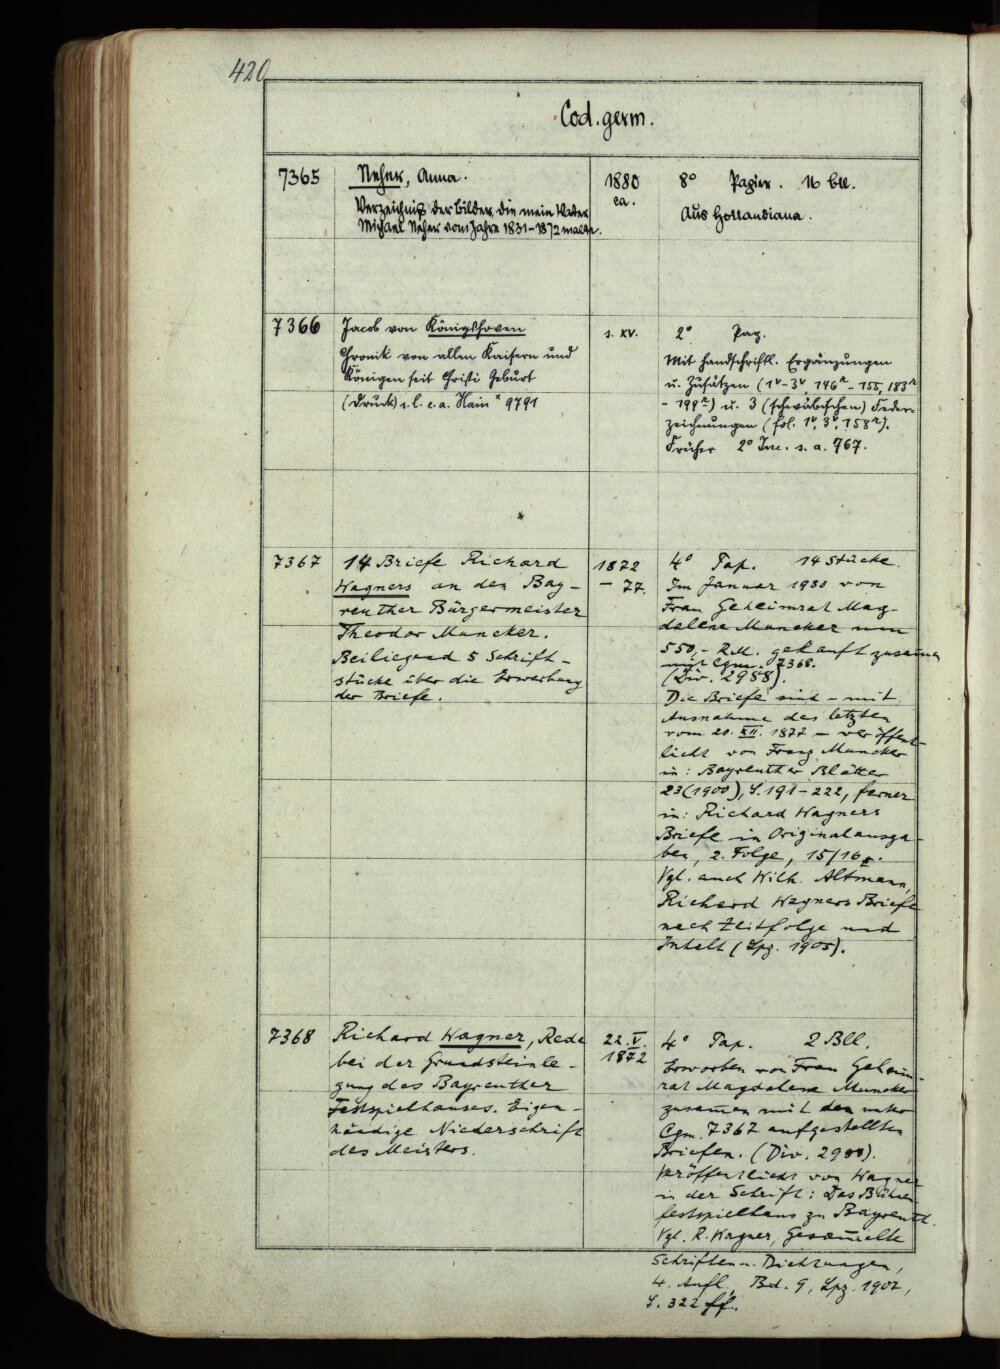 420
Cod. germ.
7365
Neher, Anna.
Verzeichnis der Bilder, die mein Vater
Michael Neher vom Jahre 1831-1872 malte.
1880
ca.
8° Papier. 16 Bll.
Aus Hollandiana.
7366
Jacob von Königshoven
Chronik von allen Kaisern und
Königen seit Christi Geburt
(Druck) s. l. e. a. Hain * 9791
s. XV.
2° Pap.
Mit handschriftl. Ergänzungen
u. Zusätzen (1v-3v, 146r - 155, 183r
- 199r) u. 3 (schwäbischen) Feder=
zeichnungen (fol. 1v, 3v, 158r).
Früher 2° Inc. s. a. 767.
7367
14 Briefe Richard
Wagners an den Bay-
reuther Bürgermeister
Theodor Muncker.
Beiliegend 5 Schrift-
stücke über die Erwerbung
der Briefe.
1872
- 77.
4° Pap. 14 Stücke
Im Januar 1933 von
Frau Geheimrat Mag-
dalene Muncker um
550,- R.M. gekauft zusammen
mit Cgm. 7368.
(Div. 2988).
Die Briefe sind - mit
Ausnahme des letzten
vom 20. XII. 1877 - veröffent-
licht von Franz Muncker
in: Bayreuther Blätter
23 (1900), S. 191-222, ferner
in: Richard Wagners
Briefe in Originalausga-
ben, 2. Folge, 15/16.
Vgl. auch Wilh. Altmann,
Richard Wagners Briefe
nach Zeitfolge und
Inhalt (Lpz. 1905).
7368
Richard Wagner, Rede
bei der Grundsteinle-
gung des Bayreuther
Festspielhauses. Eigen-
händige Niederschrift
des Meisters.
22. V.
1872
4° Pap. 2 Bll.
Erworben von Frau Geheim-
rat Magdalene Muncker
zusammen mit den unter
Cgm. 7367 aufgestellten
Briefen. (Div. 2988).
Veröffentlicht von Wagner
in der Schrift: Das Bühnen-
festspielhaus zu Bayreuth.
Vgl. R. Wagner, Gesammelte
Schriften u. Dichtungen,
4. Aufl., Bd. 9, Lpz. 1907,
S. 322 ff.